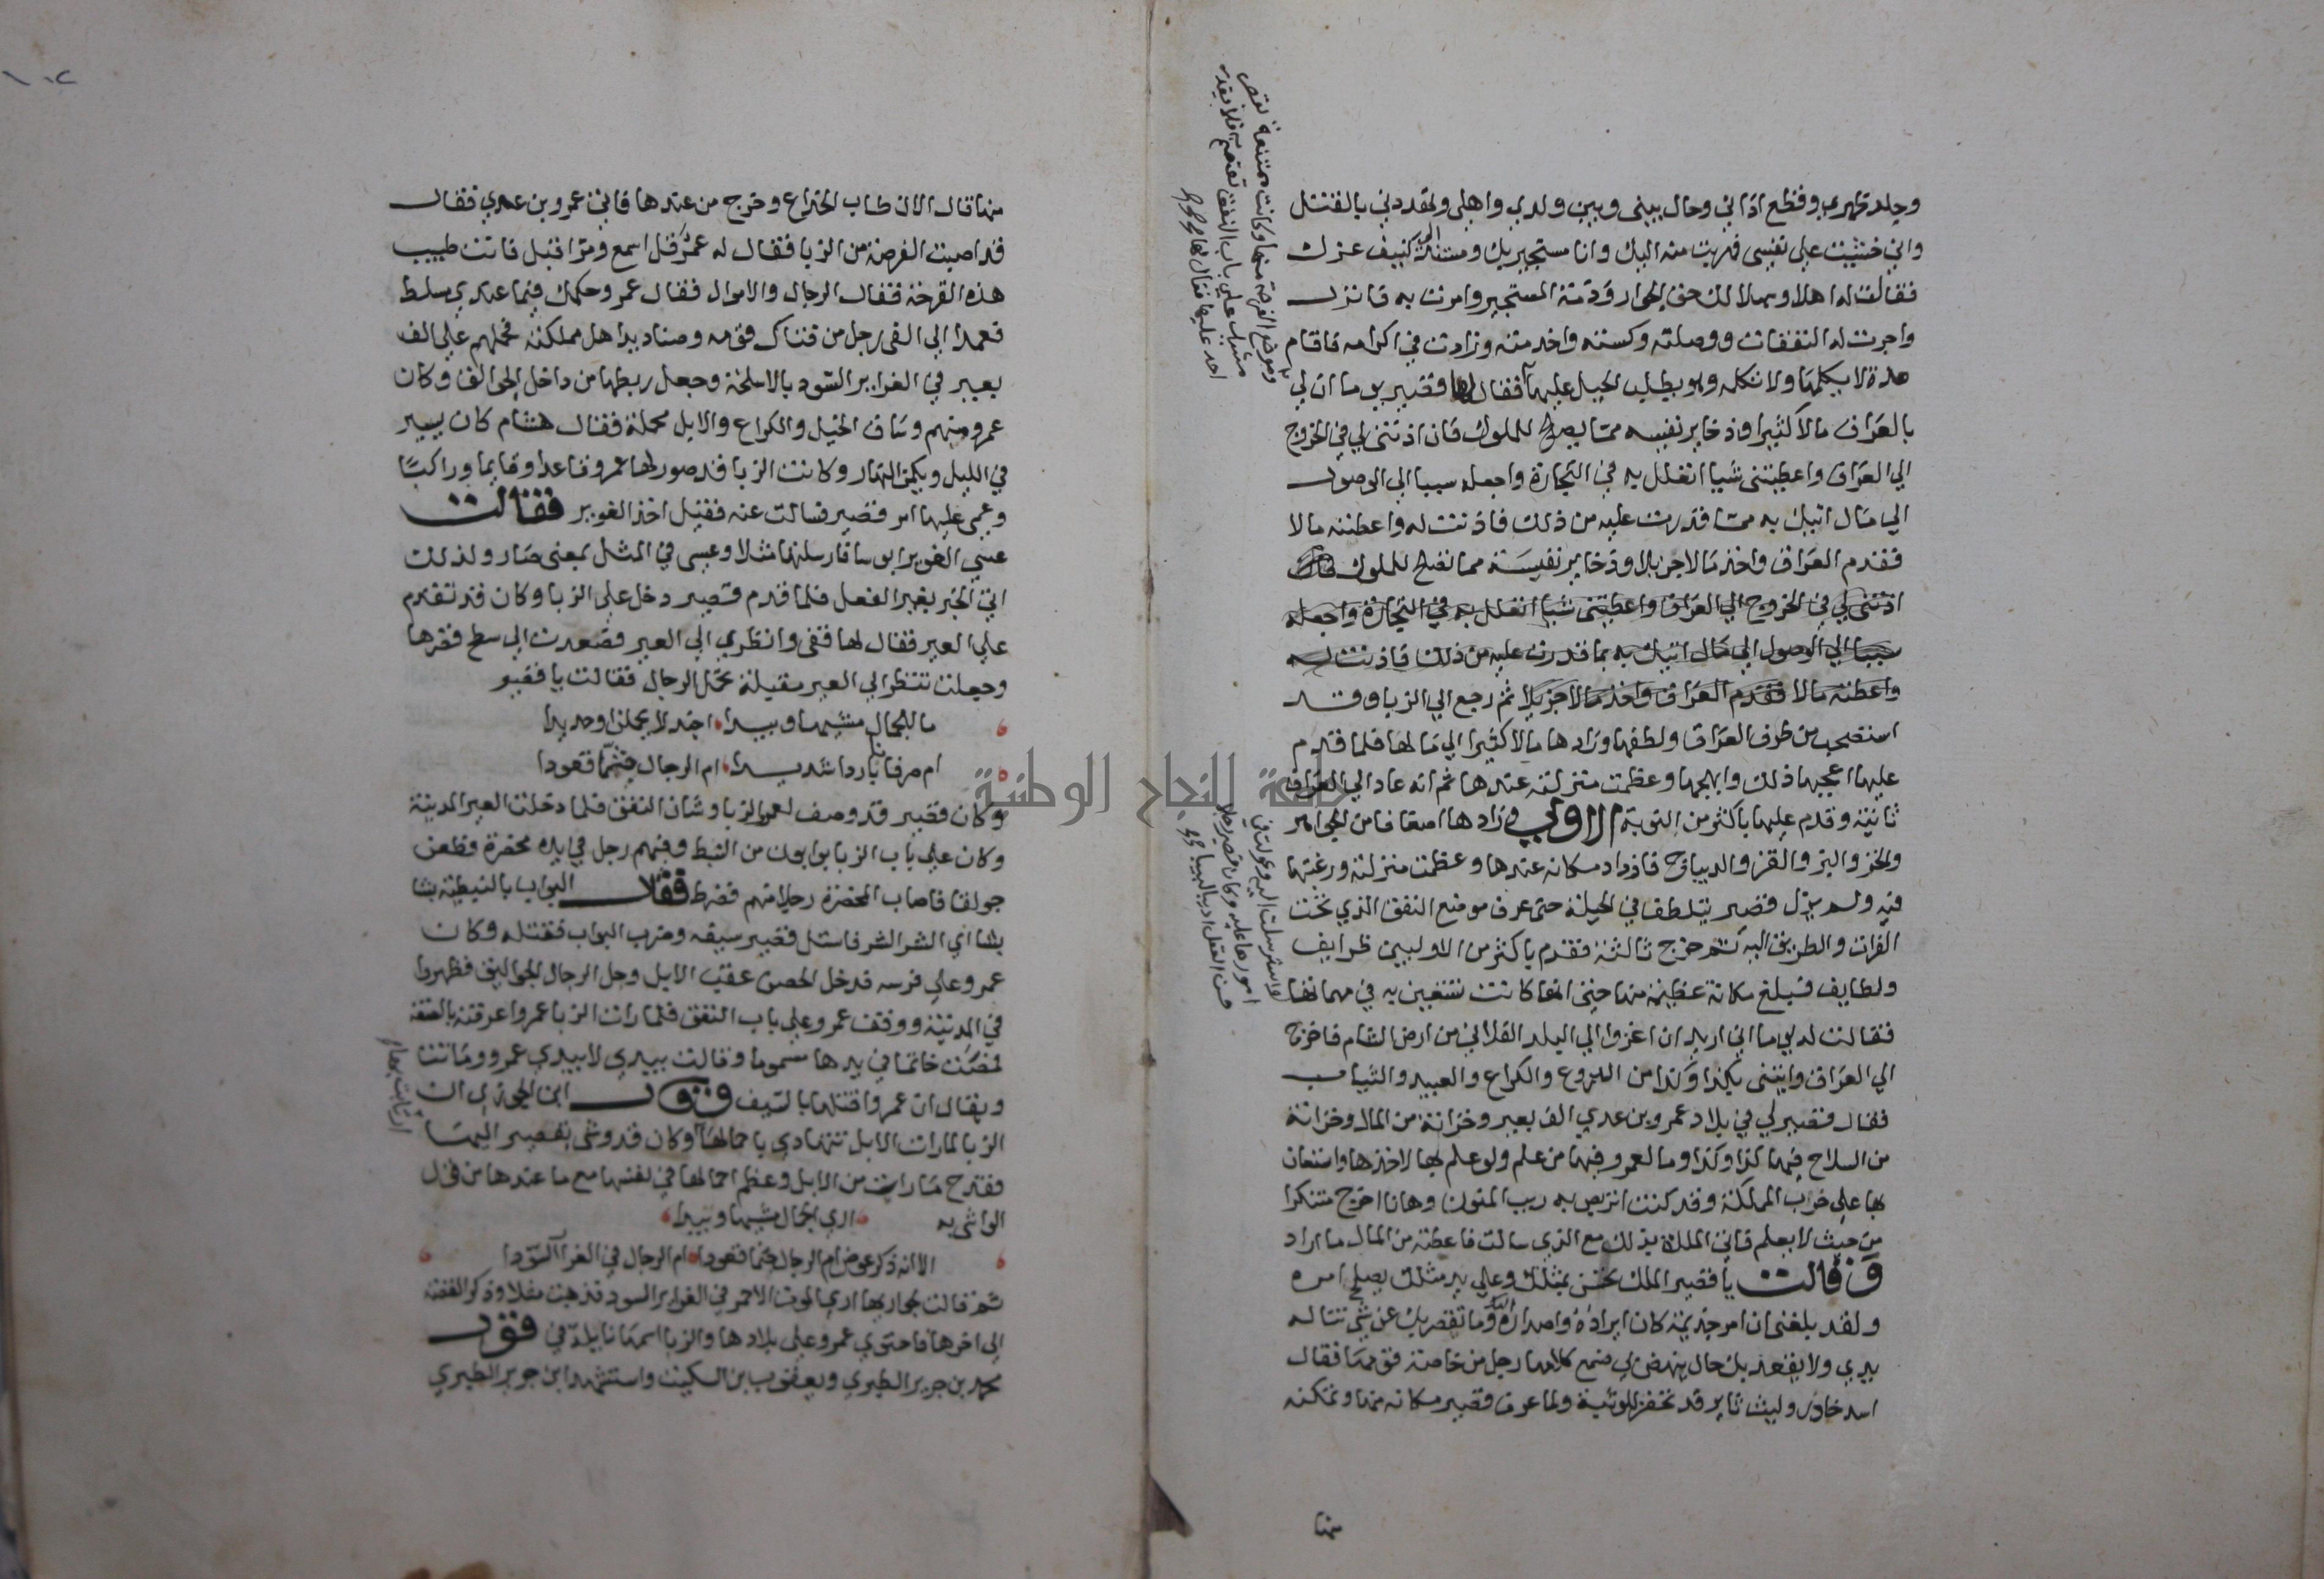 وجلد ظهري وقطع اذاني وحال بيني وبين ولدي واهلي وتهددني بالقتل
واني خشيت على نفسي فهربت منه اليك وانا مستجير بك ومستند الى كنيف عزك
فقالت له اهلا وسهلا لك حق الجوار وذمة المستجير وامرت به فانزل
واجرت له النفقات ووصلته وكسته واخدمته وزادت في اكرامه فاقام
مدة لا يكلمها ولا تكلمه وهو يطلب الحيل عليها فقال لها قصير يوما ان لي
بالعراق مالا كثيرا وذخاير نفيسه مما يصلح للملوك فان اذنتي لي في الخروج
الي العراق واعطيتني شيا اتعلل به في التجارة واجعله سببا الي الوصول
الي مال اتيك به مما قدرت عليه من ذلك فاذنت له واعطته مالا
فقدم العراق واخذ مالا جزيلا وذخاير نفيسة مما تصلح للملوك فان
اذنتي لي في الخروج الي العراق واعطيتني شيا اتعلل به في التجارة واجعله
سببا الي الوصول الي مال اتيك به بما قدرت عليه من ذلك فاذنت له
واعطته مالا فقدم العراق واخذ مالا جزيلا ثم رجع الي الزبا وقد
استصحب من ظرف العراق ولطفها وزادها مالا كثيرا الي مالها فلما قدم
عليها اعجبها ذلك وابهجها وعظمت منزلته عندها ثم انه عاد الي العراق
ثانية وقدم عليها باكثر من النوبة الاولي وزادها اضعافا من الجواهر
والخز والبز والقز والديباج فازداد مكانه عندها وعظمت منزلته ورغبتها
فيه ولم يزل قصير يتلطف في الحيلة حتى عرف موضع النفق الذي تحت
الفرات والطريق اليه ثم خرج ثالثة فقدم باكثر من الاوليين ظرايف
ولطايف فبلغ مكانة عظيمة منها حتى انها كانت تستعين به في مهماتها
فقالت له يوما اني اريد ان اغزوا الي البلد الفلاني من ارض الشام فاخرج
الي العراق وايتني بكذا وكذا من الدروع والكراع والعبيد والثياب
فقال قصير لي في بلاد عمرو بن عدي الف بعير وخزانة من المال وخزانة
من السلاح فيها كذا وكذا وما لعمرو فيها من علم ولو علم بها لاخذها واستعان
بها على حرب المملكة وقد كنت اتربص به ريب المنون وها انا اخرج متنكرا
من حيث لا يعلم فاتي الملكة بذلك مع الذي سالت فاعطته من المال ما اراد
وقالت يا قصير الملك يحسن بمثلك وعلي يد مثلك يصلح امره
ولقد بلغني ان امر جذيمة كان ايراده واصداره اليك وما تقصر بك عن شي تناله
يدي ولا يقعد بك حال ينهض لي فسمع كلامها رجل من خاصة قومها فقال
اسد خادر وليث ثاير قد تحفز للوثبة ولما عرف قصير مكانه منها وتمكنه
منها
وموضع الفرصة منها وكانت ممتنعة بقصر
مشيد على باب النفق تعتصم فلا يقدر
احد عليها فقال لها
واسترسلت اليه وعولت في
امورها عليه وكان قصير رجلا
حسن العقل اديبا لبيبا
منها قال الان طاب الخداع وخرج من عندها فاتي عمرو بن عدي فقال
قد اصبت الفرصة من الزبا فقال له عمرو قل اسمع ومر اقبل فانت طبيب
هذه القرحة فقال الرجال والاموال فقال عمرو حكمك فيما عندي مسلط
فعمد الي الفي رجل من فتاك قومه وصناديد اهل مملكته فحملهم علي الف
بعير في الغراير السود بالاسلحة وجعل ربطها من داخل الجوالق وكان
عمرو منهم وساق الخيل والكراع والابل محملة فقال هشام كان يسير
في الليل ويكمن النهار وكانت الزبا قد صور لها عمرو قاعدا وقايما وراكبا
وعمي عليها امر قصير فسالت عنه فقيل اخذ الغوير فقالت
عسي الغوير ابوسا فارسلتها مثلا وعسى في المثل بمعنى صار ولذلك
اتي الخبر بغير الفعل فلما قدم قصير دخل علي الزبا وكان قد تقدم
علي العير فقال لها قفى وانظري الي العير فصعدت الي سطح قصرها
وجعلت تنظر الي العير مقبلة تحمل الرجال فقالت يا قصير
ما للجمال مشيها وييدا اجندلا يحملن ام حديدا
ام صرفانا باردا شديدا ام الرجال جثما قعودا
وكان قصير قد وصف لعمرو الزبا وشان النفق فلما دخلت العير المدينة
وكان علي باب الزبا بوابون من النبط وفيهم رجل في يده مخصرة فطعن
جولقا فاصاب المخصرة رجلا منهم فضرط فقال البواب بالنبطية بشا
بشا اي الشر الشر فاستل قصير سيفه وضرب البواب فقتله وكان
عمرو علي فرسه فدخل الحصن عقب الابل وحل الرجال الجواليق فظهروا
في المدينة ووقف عمرو علي باب النفق فلما رات الزبا عمروا عرفته بالصفة
فمصت خاتما في يدها مسموما وقالت بيدي لا بيدي عمرو وماتت
ويقال ان عمروا قتلها بالسيف وقول ابن الجوزي ان
الزبا لما رات الابل تتهادي باحمالها وكان قد وشى بقصير اليها
فقدح ما رات من الابل وعظم احمالها في نفسها مع ما عندها من قول
الواشي به اري الجمال مشيها وييدا
الا انه ذكر عوض ام الرجال جثما قعودا ام الرجال في الغراير السودا
ثم قالت لجواريها اري الموت الاحمر في الغراير السود فذهبت مثلا وذكر القصة
الي اخرها فاحتوي عمرو علي بلادها والزبا اسمها نايلة في قول
محمد بن جرير الطبري ويعقوب بن السكيت واستشهد ابن جرير الطبري
جامعة النجاح الوطنية